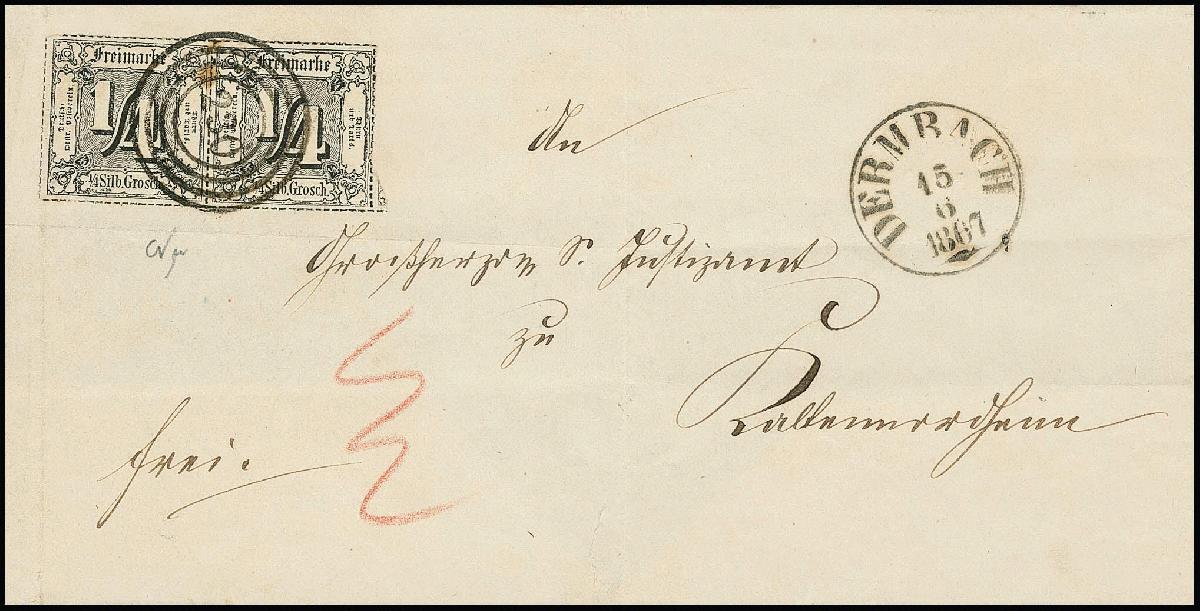 Freimarke Freimarke
1/4 1/4
¼ Silb. Grosch. ¼ Silb. Grosch.
DERMBACH
15
6
1867
An
Großherzog S. Justizamt
zu
Kaltennordheim
frei.